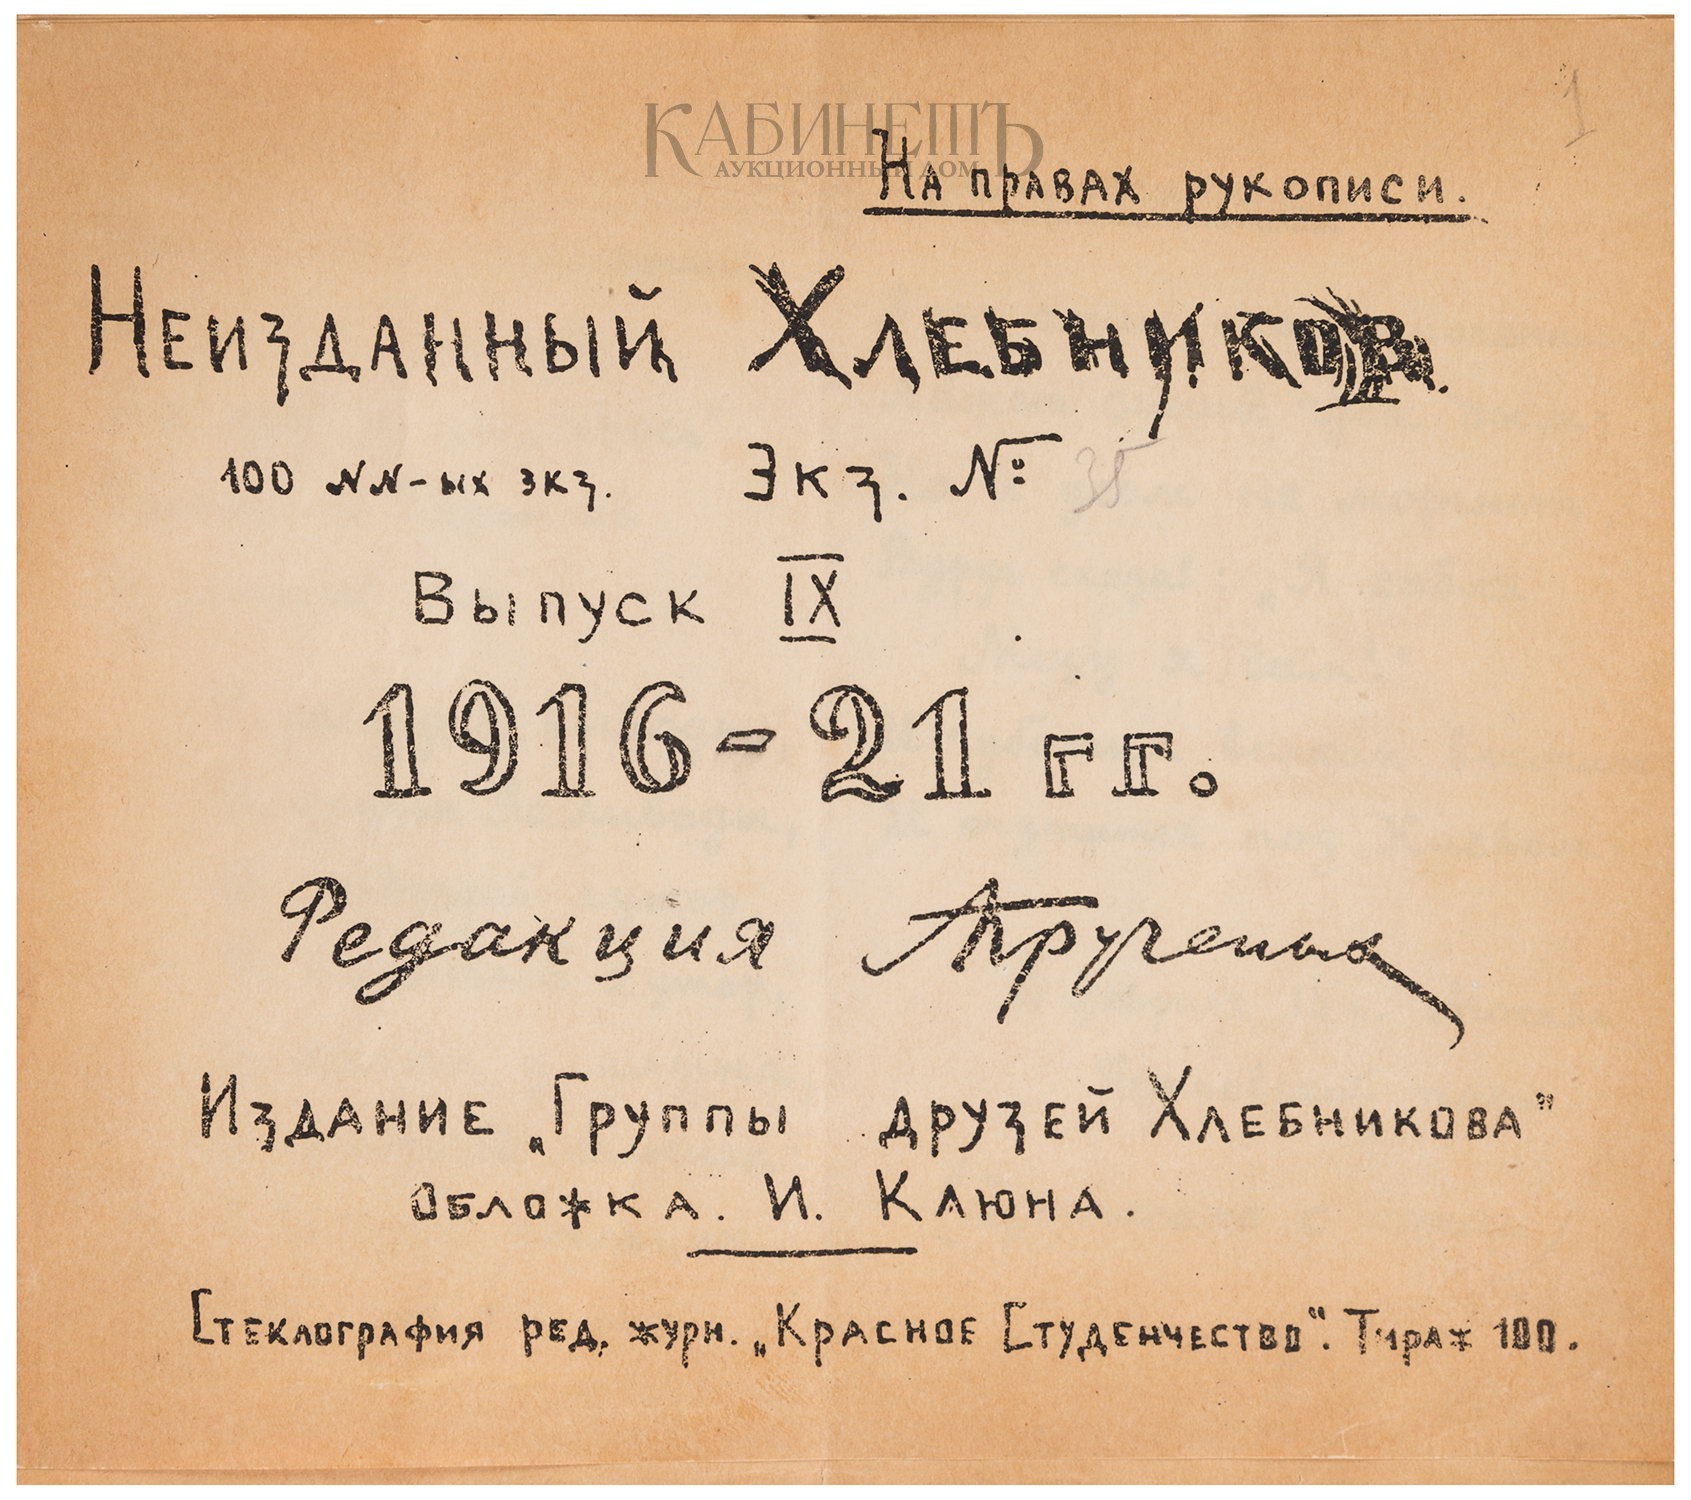 1
КАБИНЕТЪ
АУКЦИОННЫЙ ДОМ
На правах рукописи.
Неизданный Хлебников.
100 NN-ых экз. Экз. №: 35
Выпуск IX
1916-21 гг.
Редакция А Крученых
Издание „Группы друзей Хлебникова”
Обложка. И. Клюна.
Стеклография ред. журн. „Красное Студенчество”. Тираж 100.